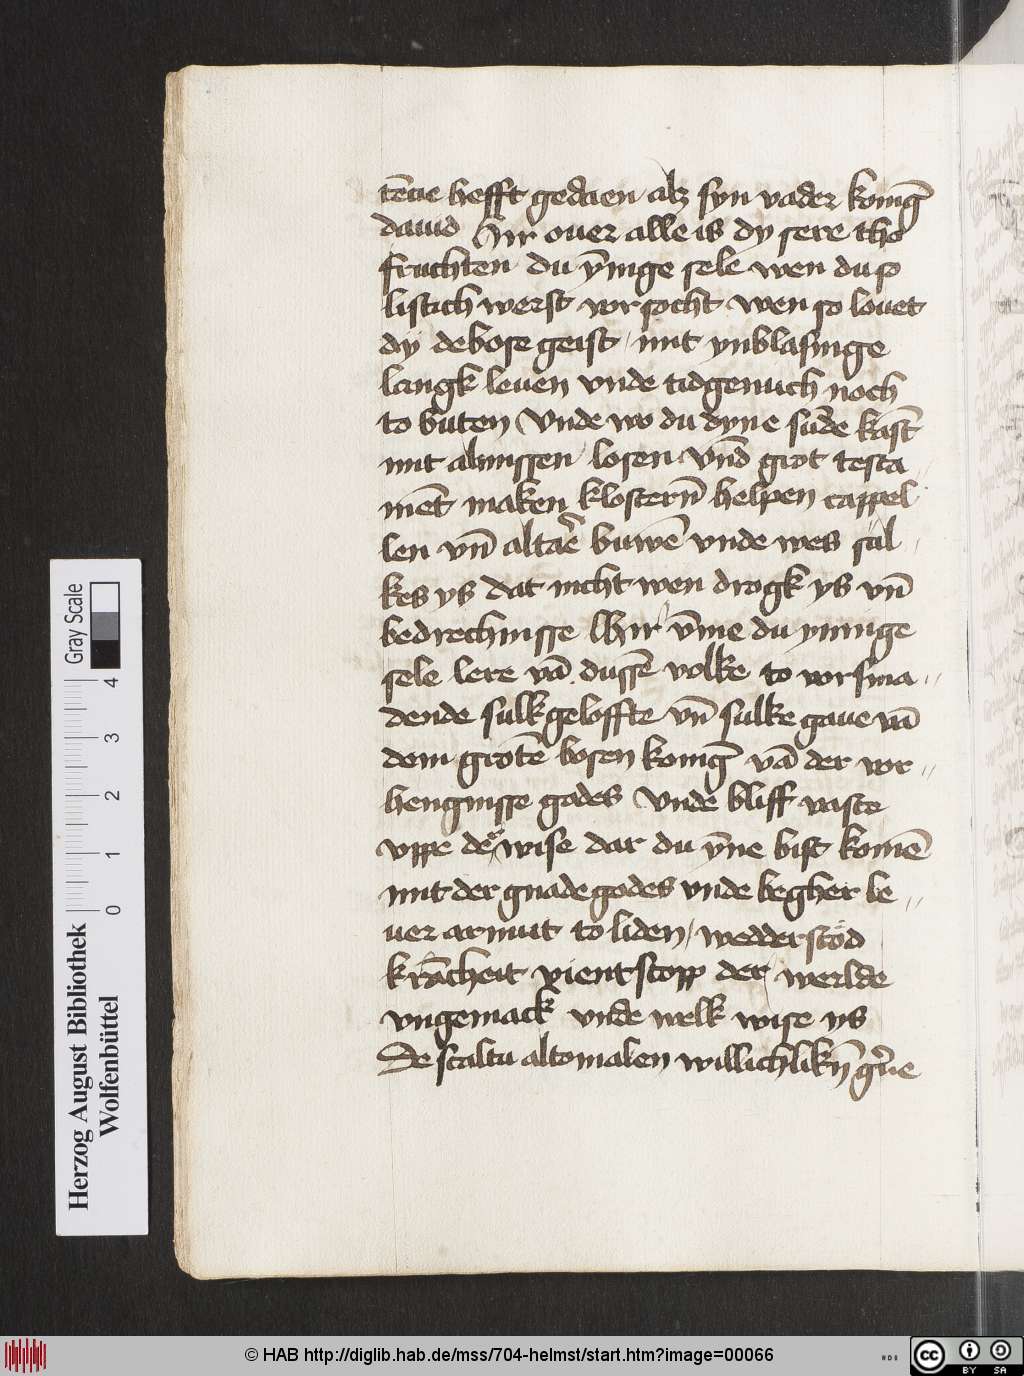 tēcie hefft gedaen alz syn vader konīg
dauid Hir ouer alle is dy sere tho
fruchten du ȳnige sele wen du so
listich werst vorsocht wen so louet
dÿ de bose geist / mit ynblasinge
langk leuen vnde tidgenuch noch
to buten Vnde wo du dyne sūde kāst
mit almissen losen vn̄d grot testa
mēt maken klostern̄ helpen cappel
len vn̄ altaē buwē vnde wes sul
kes ys dat nicht wen drogk ys vn̄
bedrechnisse Hir v̄me du ynnige
sele lere vā dussē volke to vorsma
dende sulk geloffte vn̄ sulke gaue vā
dem grotē bosen konīg vā der vor
hengnisse gades Vnde bliff vaste
vppe der wise dar du ȳne bist komē
mit der gnade godes vnde begher le
uer armut to liden / wedderstōd
krācheit pientscopp der werlde
vngemack vnde welk wise ys
De scaltu altomalen willichlikn̄ gerne
Gray Scale
4
3
2
1
0
Herzog August Bibliothek
Wolfenbüttel
© HAB http://diglib.hab.de/mss/704-helmst/start.htm?image=00066
HAB
cc BY SA